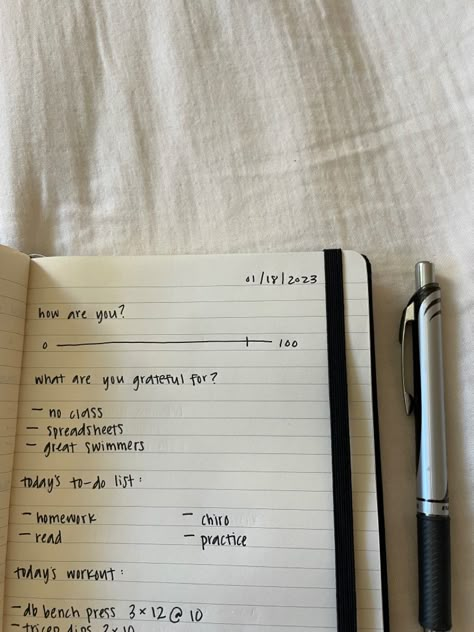 01/18/2023
how are you?
0 100
what are you grateful for?
- no class
- spreadsheets
- great swimmers
today's to-do list:
- homework - chiro
- read - practice
today's workout:
- db bench press 3x12 @ 10
- tricep dips 2x10